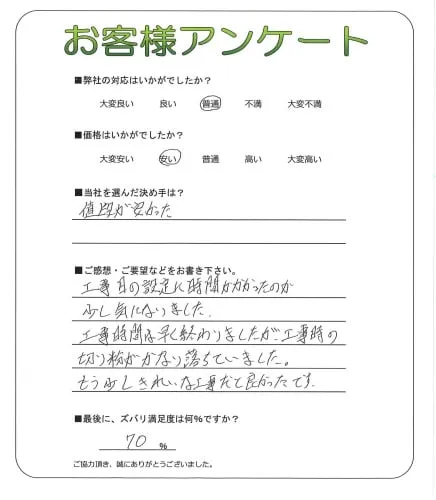 お客様アンケート
■弊社の対応はいかがでしたか？
大変良い 良い 普通 不満 大変不満
■価格はいかがでしたか？
大変安い 安い 普通 高い 大変高い
■当社を選んだ決め手は？
値段が安かった
■ご感想・ご要望などをお書き下さい。
工事日の設定に時間がかかったのが
少し気になりました。
工事時間は早く終わりましたが、工事時の
切り粉がかなり落ちていました。
もう少しきれいな工事だと良かったです。
■最後に、ズバリ満足度は何%ですか？
70 %
ご協力頂き、誠にありがとうございました。